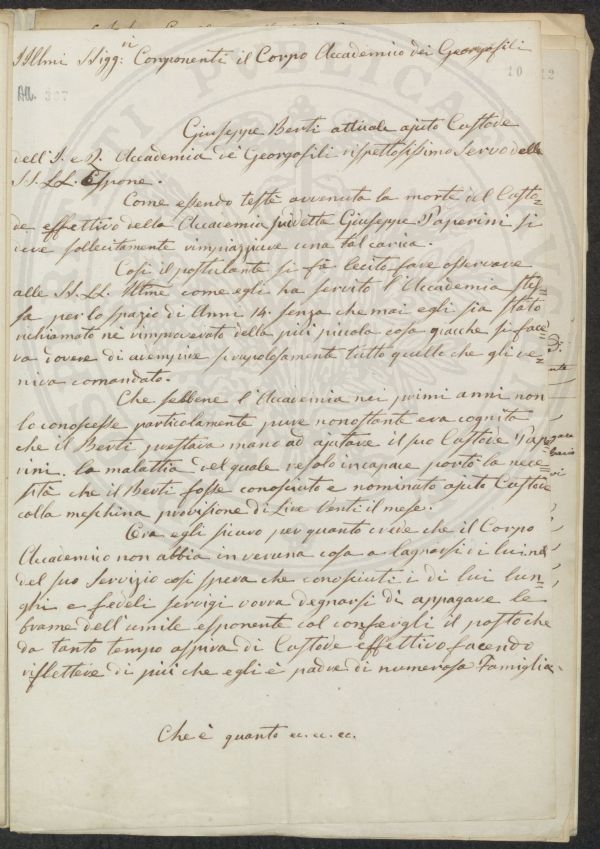 Illmi Sigg:ri Componenti il Corpo Accademico dei Georgofili
10
12
All. 387
Giuseppe Berti attuale ajuto Custode
dell'I. e R. Accademia de Georgofili rispettosissimo Servo delle
SS. LL. Espone.
Come essendo teste avvenuta la morte del Custo=
de effettivo della Accademia suddetta Giuseppe Paperini si
deve sollecitamente rimpiazzare una tal carica.
Così il postulante si fà lecito fare osservare
alle SS. LL. Illme come egli ha servito l'Accademia stes=
sa per lo spazio di Anni 14. senza che mai egli sia stato
richiamato nè rimproverato della più piccola cosa giacche si face=
va dovere di adempire scrupolosamente tutto quello che gli ve=
niva comandato.
Che sebbene l'Accademia nei primi anni non
lo conoscesse particolarmente pure nonostante era cognita
che il Berti prestava mano ad ajutare il suo Custode Pape=
rini. la malattia del quale resolo incapace portò la nece=
sità che il Berti fosse conosciuto e nominato ajuto Custode
colla meschina provisione di Lire Venti il mese.
Ora egli sicuro per quanto crede che il Corpo
Accademico non abbia in veruna cosa a lagnarsi di lui nè
del suo Servizio così spera che conosciuti i di lui lun=
ghi e fedeli servigi vorrà degnarsi di appagare le
brame dell'umile esponente col conferirgli il posto che
da tanto tempo aspira di Custode effettivo facendo
riflettere di più che egli è padre di numerosa Famiglia.
Che è quanto ec. ec. ec.